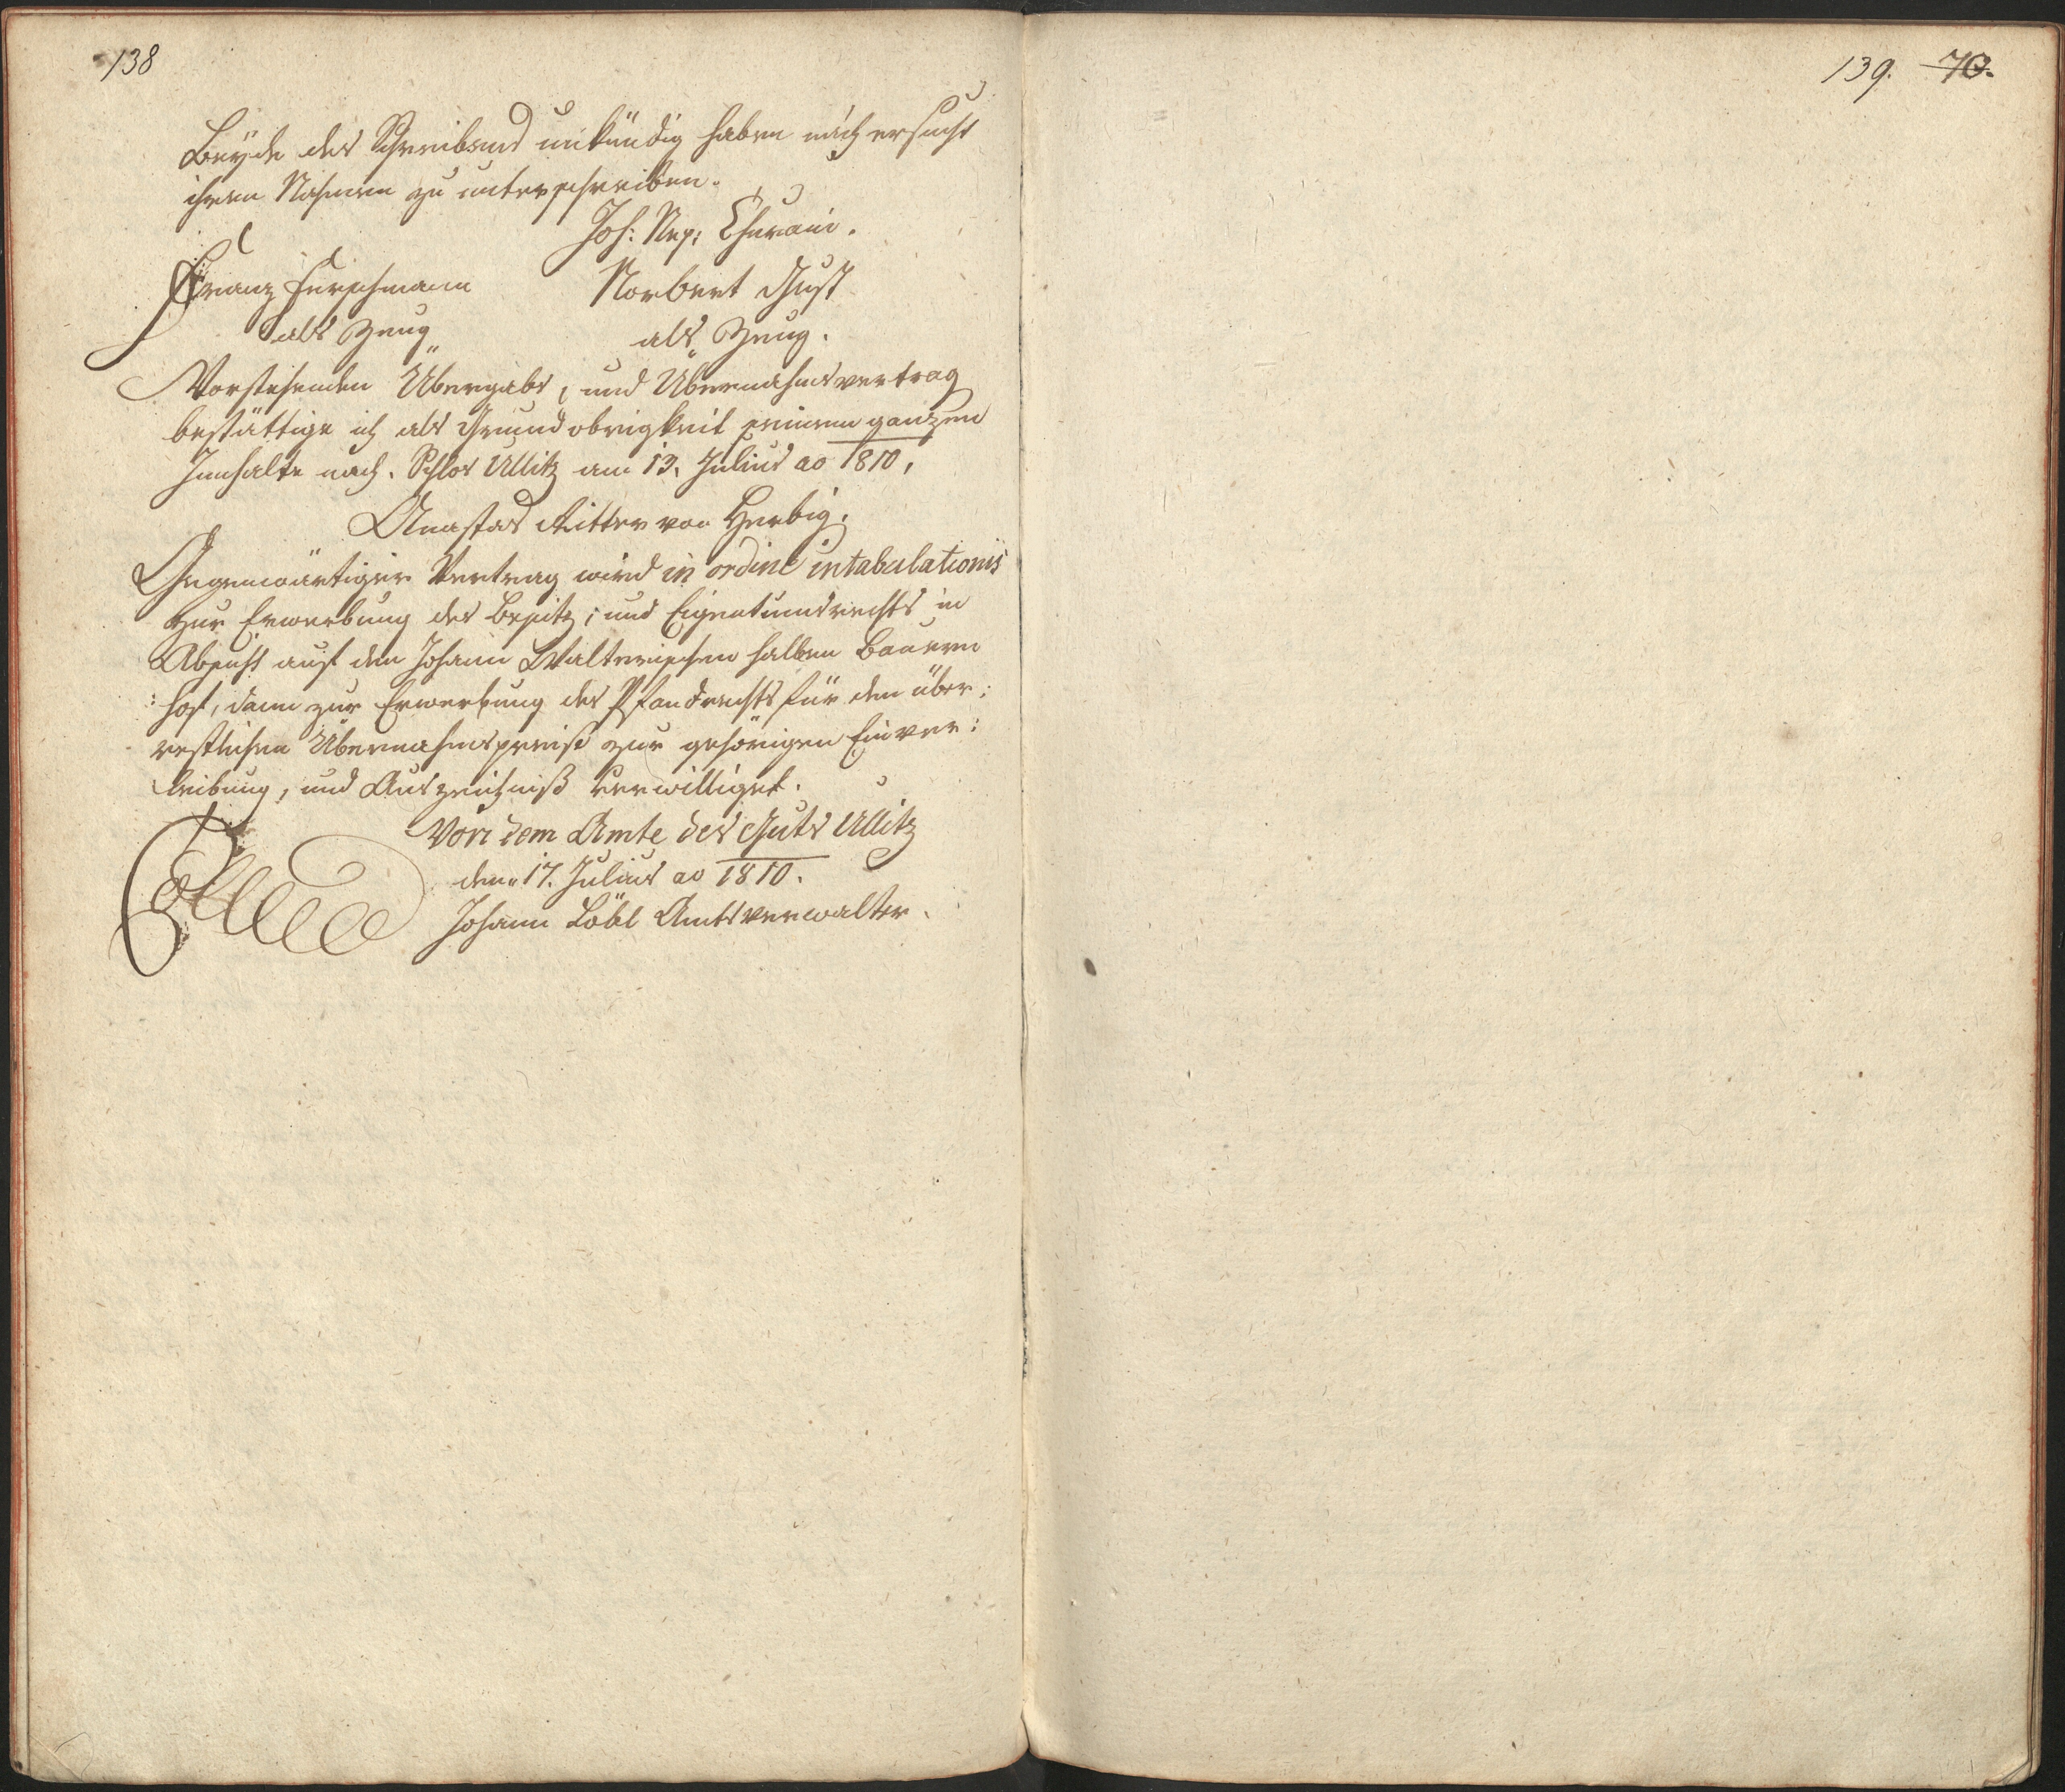 138
Beyde des Schreibens unkündig haben mich ersucht
ihren Nahmen zu unterschreiben.
Joh: Nep:
Franz Hirschmann Norbert Just
als Zeug als Zeug.
Vorstehenden Übergabs, und Übernahmsvertrag
bestättige ich als Grundobrigkeit seinem ganzen
Innhalte nach. Schlos Ullitz am 13. Julius ao 1810,
Anastas Ritter von Herbig.
Gegenwärtiger Vertrag wird in ordine intabulationis
zur Erwerbung des Besitz; und Eigentumsrechts in
Absicht auf den Johann Walterischen halben Bauern
: hof, dann zur Erwerbung des Pfandrechts für den über:
restlichen Übernahmspreiß zur gehörigen Einver:
leibung, und Auszeichniß verwilliget.
Von dem Amte des Guts Ullitz
den 17. Julius ao 1810.
Johann Löbl Amtsverwalter.
139. 70.